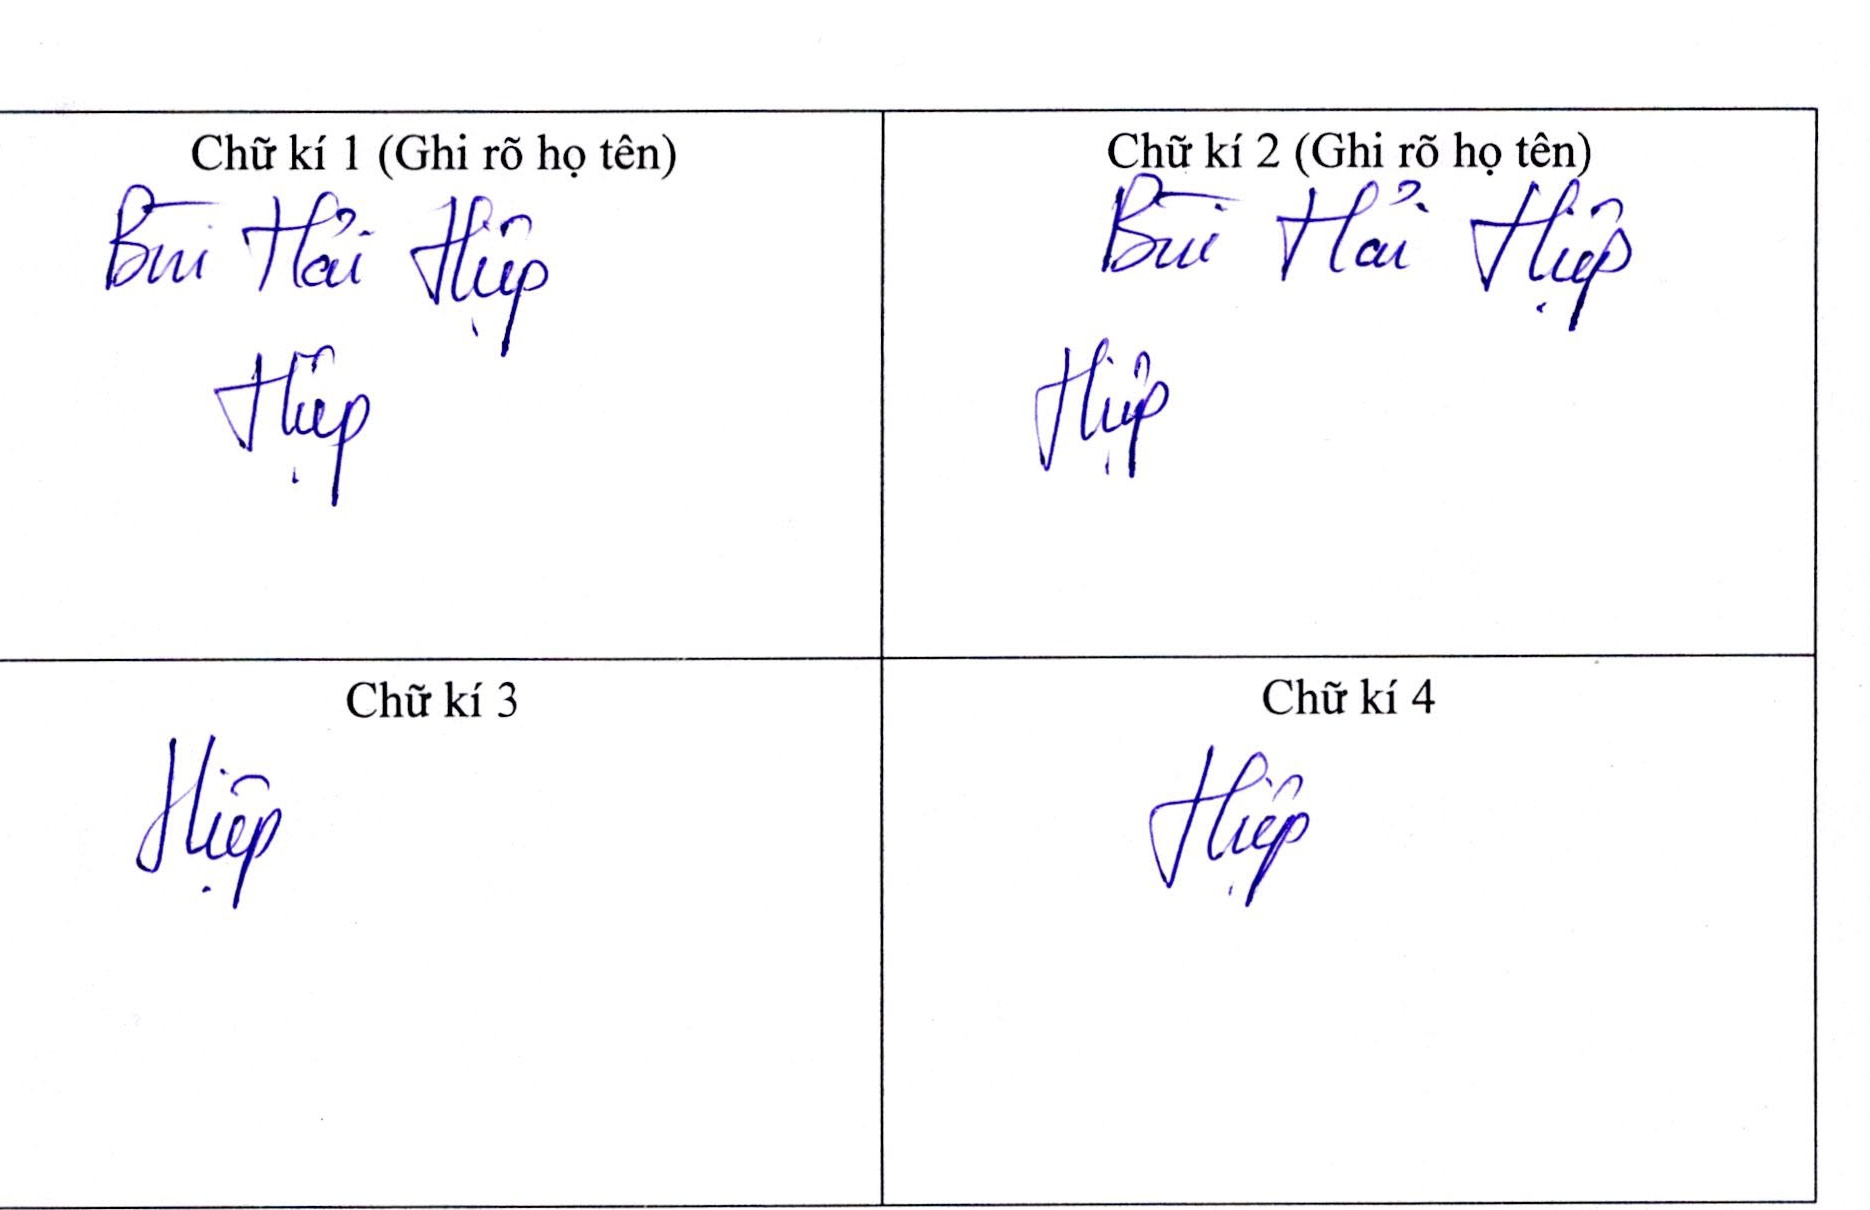 Chữ kí 1 (Ghi rõ họ tên)
Bùi Hải Hiệp
Hiệp
Chữ kí 2 (Ghi rõ họ tên)
Bùi Hải Hiệp
Hiệp
Chữ kí 3
Hiệp
Chữ kí 4
Hiệp